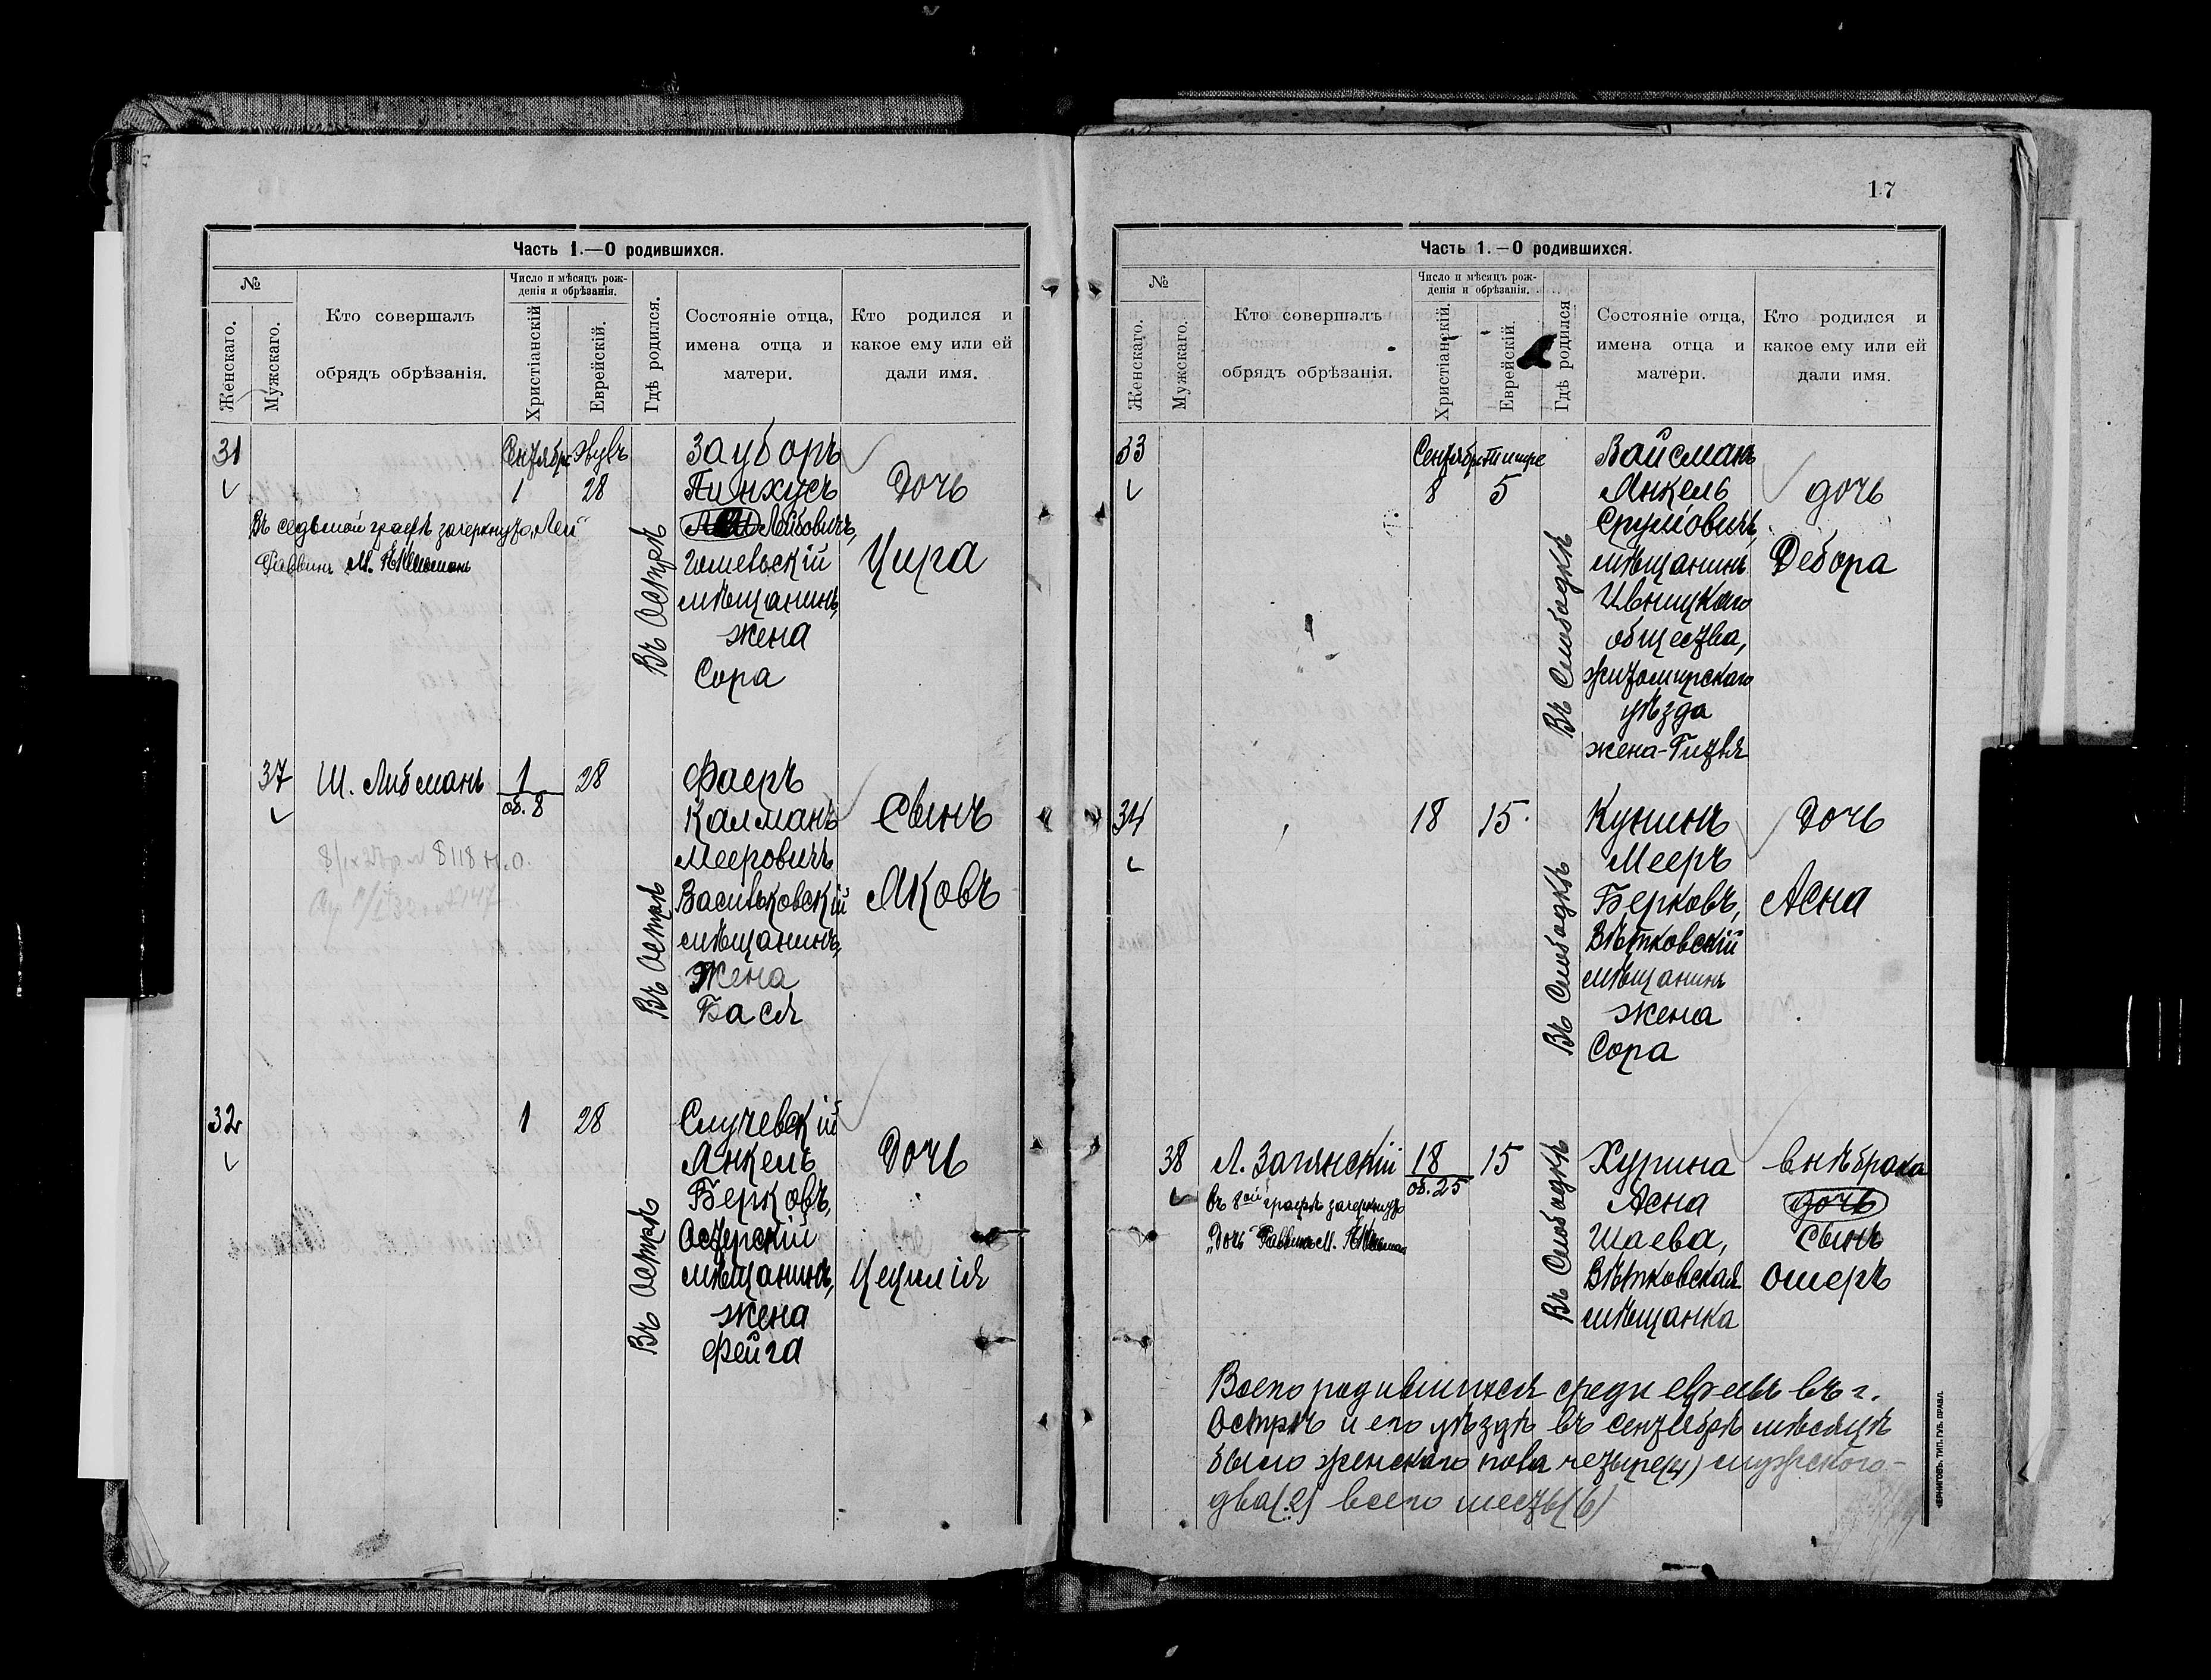 Часть 1.—О родившихся.
№
Женскаго.
Мужскаго.
Кто совершалъ
обрядъ обрѣзанія.
Число и мѣсяцъ рож-
денія и обрѣзанія.
Христіанскій
Еврейскій.
Гдѣ родился.
Состояніе отца,
имена отца и
матери.
Кто родился и
какое ему или ей
дали имя.
31
Сентябрь
1
28
Въ седьмой графѣ зачеркнуто „Лей“
Раввинъ М.
Въ Острѣ
Зауборъ
Пинхусъ
Лейбовичъ,
Гомельскій
мѣщанинъ,
жена
Сора
Дочь
Цира
37
Ш. Либманъ
1
об. 8
28
Въ Острѣ
Фаеръ
Калманъ
Мееровичъ
Васильковскій
мѣщанинъ,
Жена
Бася
Сынъ
Яковъ
32
1
28
Въ Острѣ
Случевскій
Янкель
Берковъ,
Остерскій
мѣщанинъ,
Жена
Фейга
Дочь
Цецилія
17
Часть 1.—О родившихся.
№
Женскаго.
Мужскаго.
Кто совершалъ
обрядъ обрѣзанія.
Число и мѣсяцъ рож-
денія и обрѣзанія.
Христіанскій.
Еврейскій.
Гдѣ родился
Состояніе отца,
имена отца и
матери.
Кто родился и
какое ему или ей
дали имя.
33
Сентябрь Тишре
8
5
Въ Слободкѣ
Вайсманъ
Янкель
Сруліовичъ,
мѣщанинъ
Ивницкаго
общества,
Житомирскаго
уѣзда
жена-Гитля
дочь
Дебора
34
18
15
Въ Слободкѣ
Кунинъ
Мееръ
Берковъ,
Вѣтковскій
мѣщанинъ
жена
Сора
Дочь
Асна
38
Л. Загянскій
18
об. 25
15
въ 8ой графѣ зачеркнуто
„Дочь“ Раввинъ М.
Въ Слободкѣ
Хурина
Асна
Шаева,
Вѣтковская
мѣщанка
внѣ брака
дочь
Сынъ
Ошеръ
Всего родившихся среди евреевъ въ г.
Острѣ и его уѣздѣ въ сентябрѣ мѣсяцѣ
было женскаго пола четыре(4) мужскаго-
два(2) всего шесть(6)
ЧЕРНИГОВЪ. ТИП. ГУБ. ПРАВЛ.